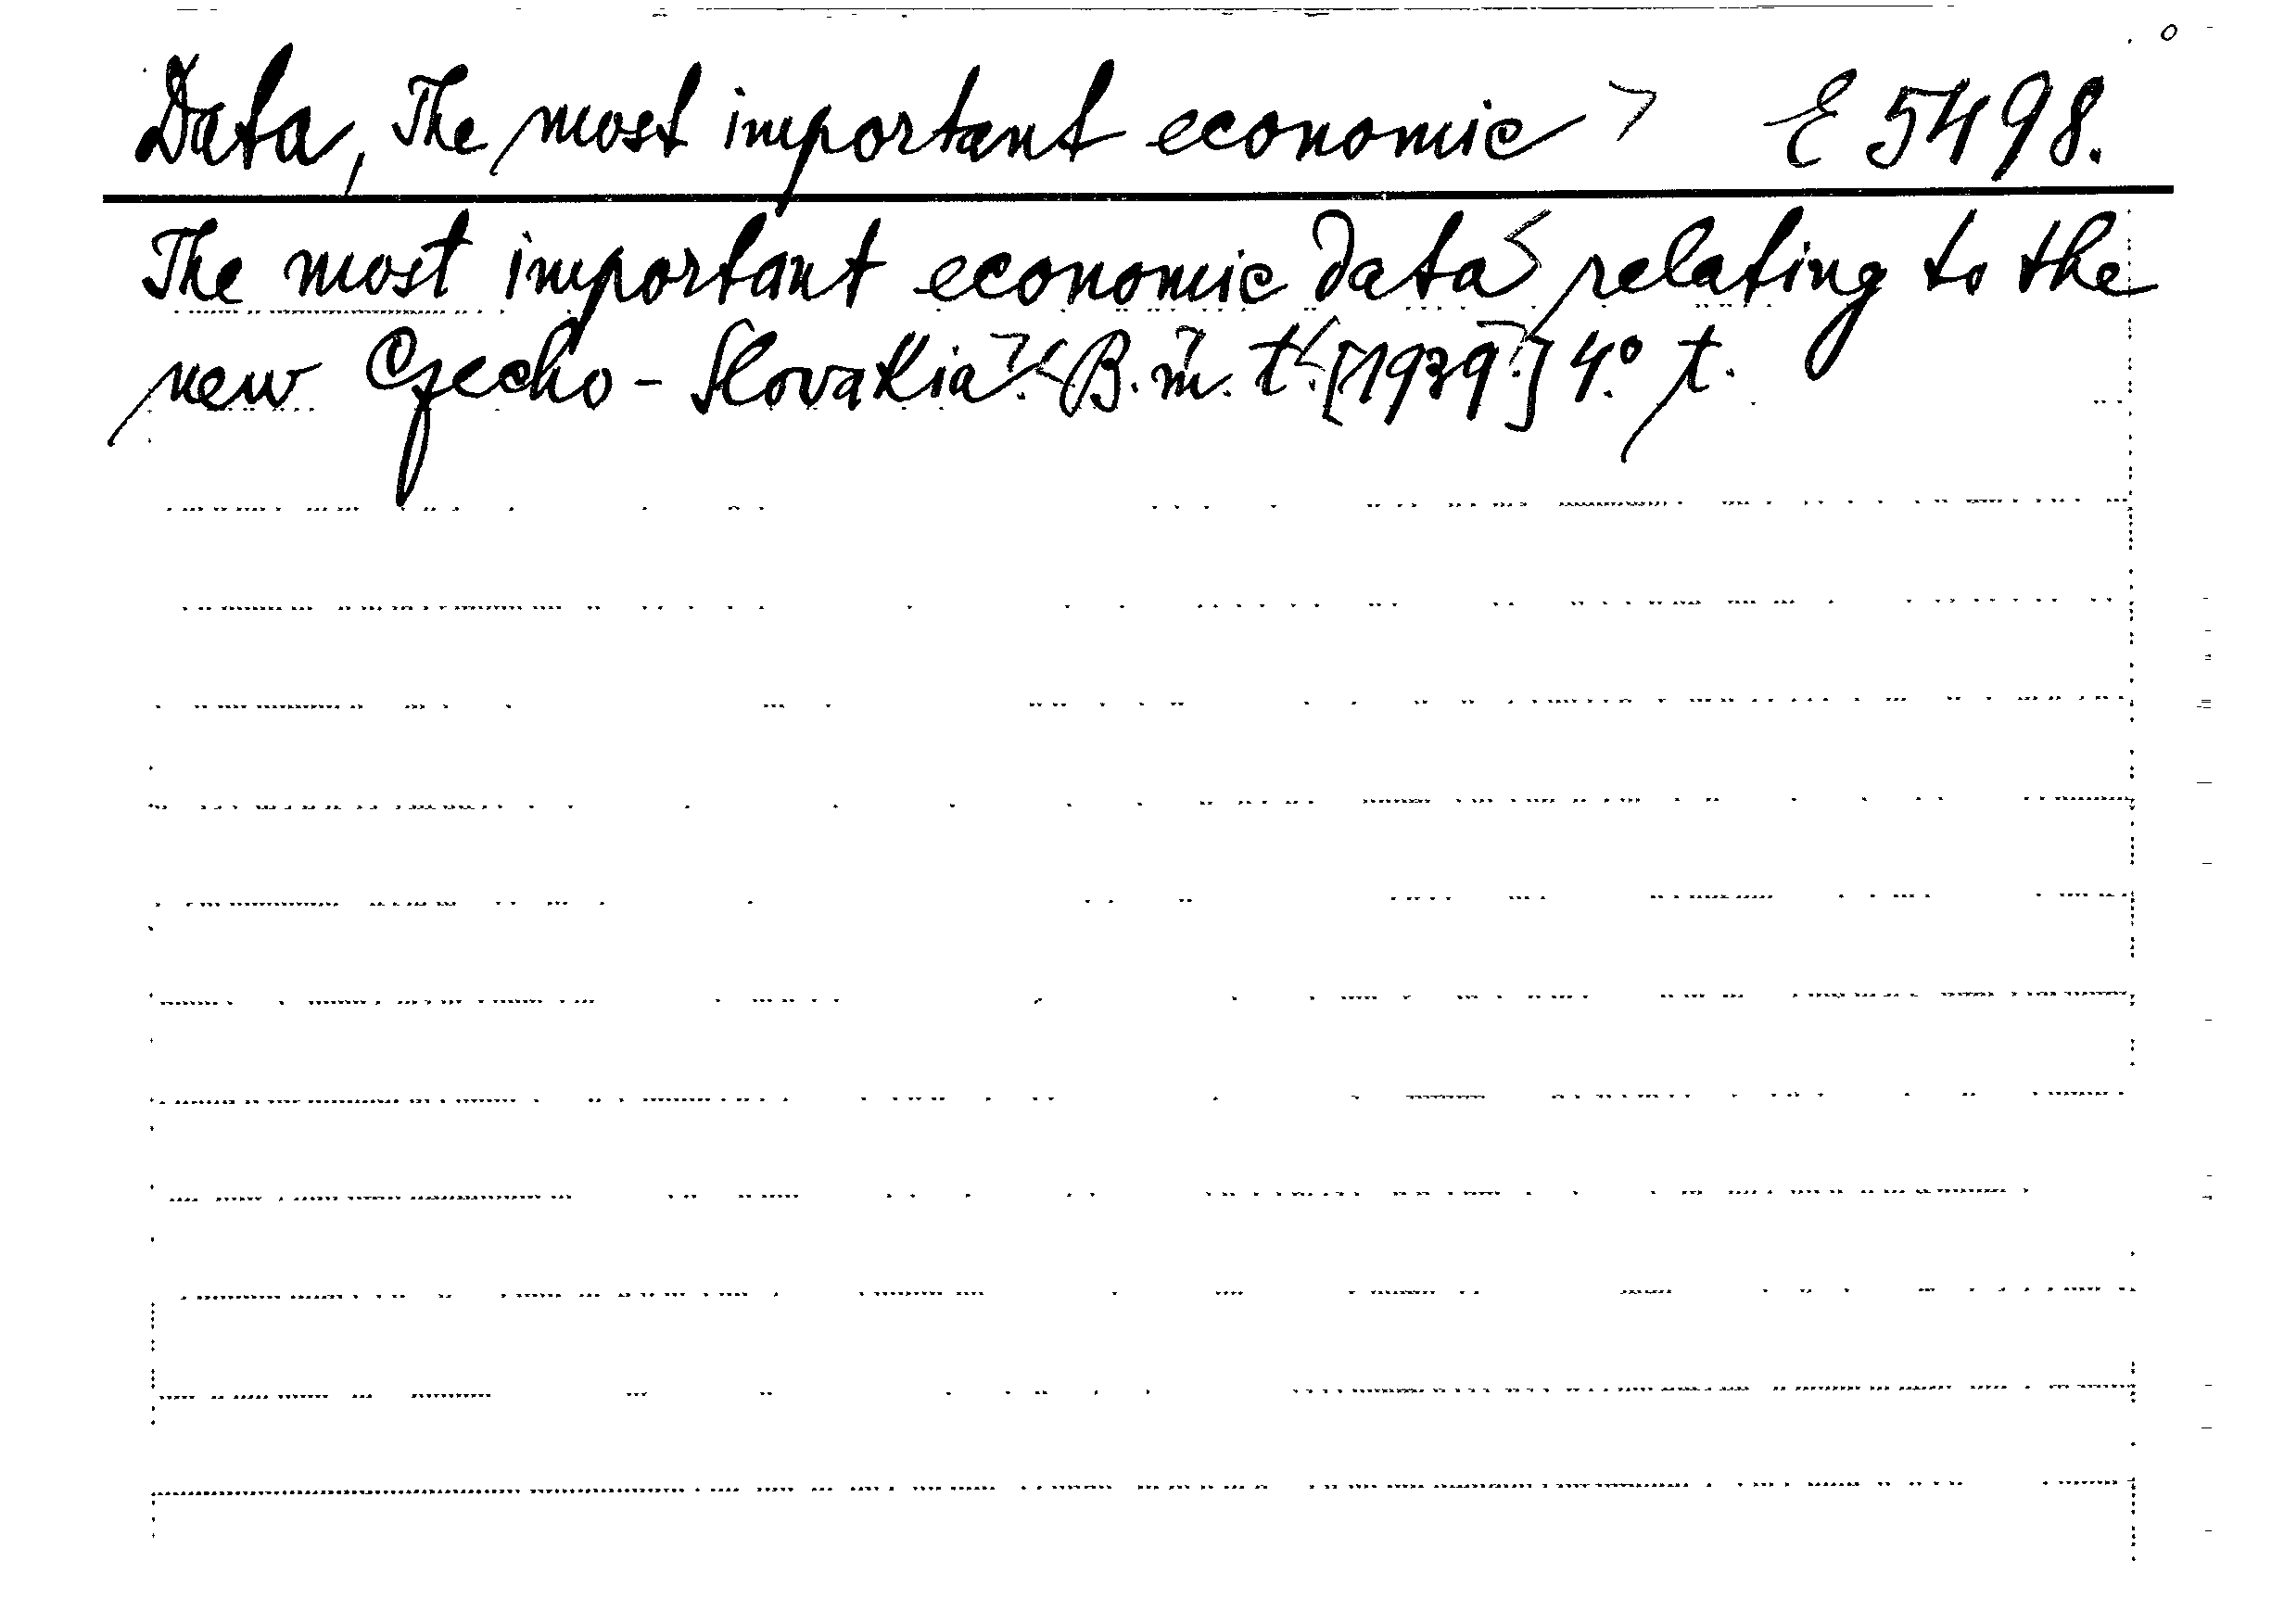 Data, The most important economic > E 5498.
The most important economic data < relating to the
new Czecho-Slovakia >. < B. m. t. [1939] 4° t.